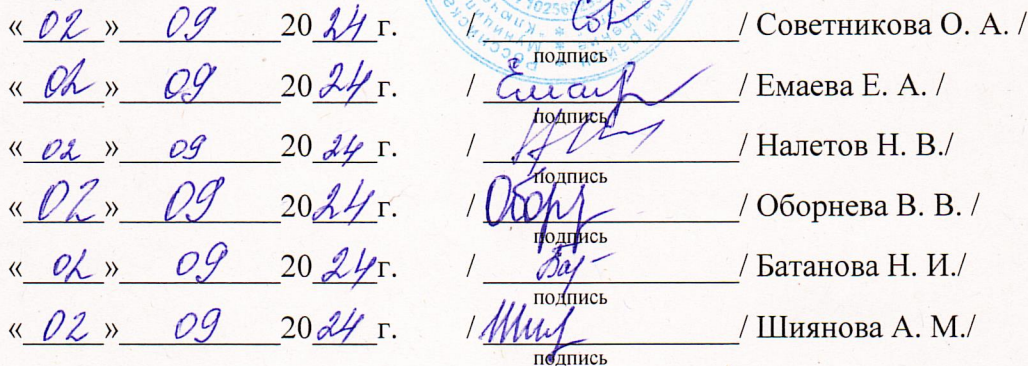 « 02 » 09 20 24 г. / Сов / Советникова О. А. /
подпись
« 02 » 09 20 24 г. / Емаев / Емаева Е. А. /
подпись
« 02 » 09 20 24 г. / / Налетов Н. В./
подпись
« 02 » 09 20 24 г. / Обор / Оборнева В. В. /
подпись
« 02 » 09 20 24 г. / Бат / Батанова Н. И./
подпись
« 02 » 09 20 24 г. / Шия / Шиянова А. М./
подпись